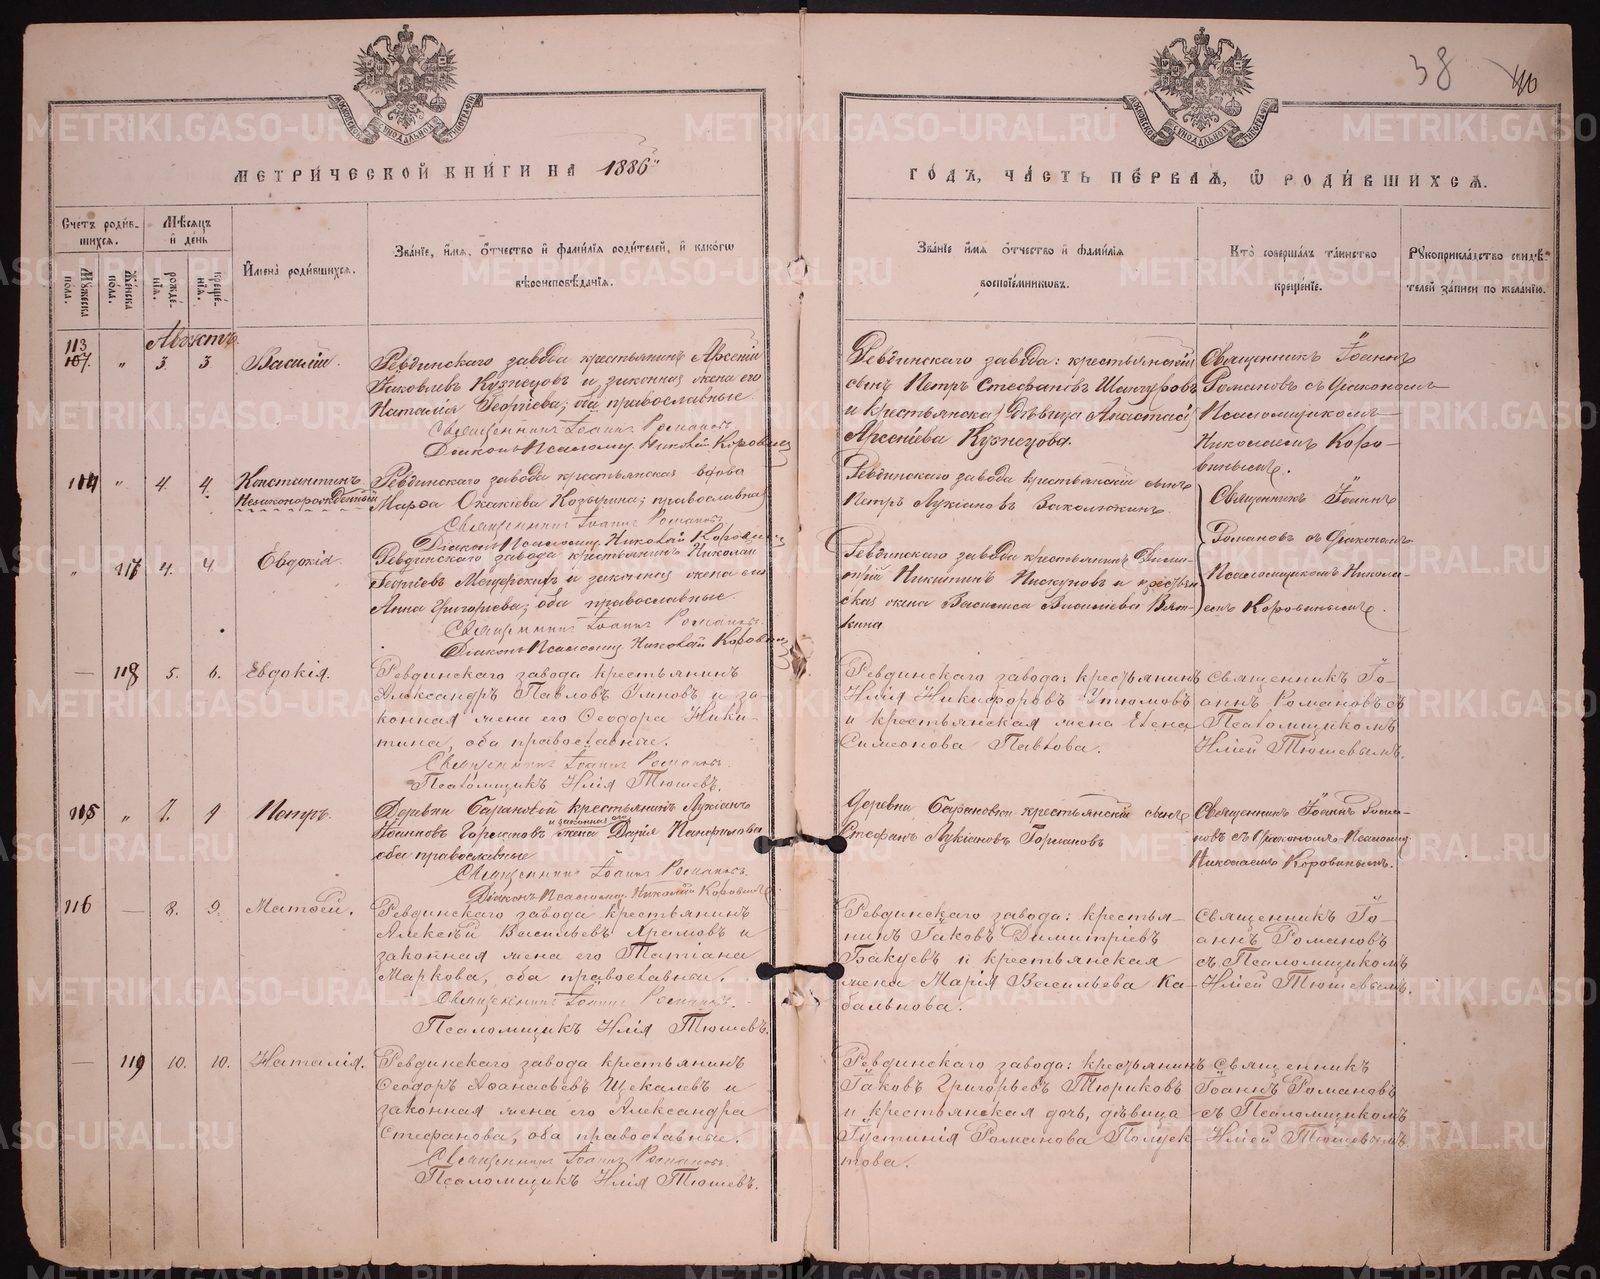 38 40
МОСКОВСКОЙ СѴНОДАЛЬНОЙ ТИПОГРАФІИ
МОСКОВСКОЙ СѴНОДАЛЬНОЙ ТИПОГРАФІИ
МЕТРИ́ЧЕСКОЙ КНИ́ГИ НА 1886й
ГО́ДЪ, ЧА́СТЬ ПЕ́РВАЯ, Ѡ РОДИ́ВШИХСЯ.
Сче́тъ роди́в-
шихся.
Му́жеска пола.
Же́нска по́ла.
Мѣсяцъ
и́ день
рожде́-
нїя.
креще́-
нїя.
И҆мена̀ роди́вшихся.
Зва́нїе, и҆́мя, о҆́тчество и҆ фами́лїя роди́телей, и҆ како́гѡ
вѣроисповѣ́данїя.
Зва́нїе и҆́мя о҆́тчество и҆ фами́лїя
воспрїе́мниковъ.
Кто̀ соверша́лъ та́инство
креще́нїе.
Рꙋкоприкла́дство свидѣ́-
телей за́писи по жела́нїю.
Августъ
113
107. " 3 3 Василій.
Ревдинскаго завода крестьянинъ Арсеній
Іаковлевъ Кузнецовъ и законная жена его
Наталія Георгіева; оба православные
Священникъ Іоаннъ Романовъ
Діаконъ Псаломщ. Николай Коровинъ
Ревдинскаго завода: крестьянскій
сынъ Петръ Стефановъ Шанчуровъ
и крестьянская дѣвица Анастасія
Арсеніева Кузнецова.
Священникъ Іоаннъ
Романовъ съ діакономъ
Псаломщикомъ
Николаемъ Коро-
винымъ.
114 " 4. 4. Константинъ
Незаконорожденный
Ревдинскаго завода крестьянская вдова
Марѳа Акакіева Козырина; православная
Священникъ Іоаннъ Романовъ
Діаконъ Псаломщ. Николай Коровинъ
Ревдинскаго завода крестьянскій сынъ
Петръ Лукіановъ Заколюкинъ.
Священникъ Іоаннъ
Романовъ съ діакономъ
Псаломщикомъ Никола-
емъ Коровинымъ.
" 117 4. 4. Евдокія.
Ревдинскаго завода крестьянинъ Николай
Георгіевъ Мещерскихъ и законная жена его
Анна Григоріева; оба православные
Священникъ Іоаннъ Романовъ.
Діаконъ Псаломщ. Николай Коровинъ
Ревдинскаго завода крестьянинъ Дими-
трій Никитинъ Пискуновъ и крестьян-
ская жена Василиса Василіева Вят-
кина
— 118 5. 6. Евдокія.
Ревдинскаго завода крестьянинъ
Александръ Павловъ Умновъ и за-
конная жена его Ѳеодора Ники-
тина, оба православные.
Священникъ Іоаннъ Романовъ.
Псаломщикъ Илія Тюшевъ.
Ревдинскаго завода: крестьянинъ
Илія Никифоровъ Утюмовъ
и крестьянская жена Елена
Симеонова Павлова.
Священникъ Іо-
аннъ Романовъ съ
Псаломщикомъ
Иліей Тюшевымъ.
115 " 7. 9 Петръ.
Деревни Барановой крестьянинъ Лукіанъ
Іоанновъ Гормановъ и законная его жена Дарія Панфилова
оба православные
Священникъ Іоаннъ Романовъ.
Діаконъ Псаломщ. Николай Коровинъ
Деревни Барановки крестьянскій сынъ
Стефанъ Лукіановъ Гормановъ
Священникъ Іоаннъ Рома-
новъ съ Діакономъ Псаломщ
Николаемъ Коровинымъ.
116 — 8. 9. Матѳей.
Ревдинскаго завода крестьянинъ
Алексѣй Васильевъ Храмовъ и
законная жена его Татіана
Маркова, оба православные.
Священникъ Іоаннъ Романовъ.
Псаломщикъ Илія Тюшевъ.
Ревдинскаго завода: крестья-
нинъ Іаковъ Димитріевъ
Бакуевъ и крестьянская
жена Марія Васильева Ка-
бальнова.
Священникъ Іо-
аннъ Романовъ
съ Псаломщикомъ
Иліей Тюшевымъ.
— 119 10. 10. Наталія.
Ревдинскаго завода крестьянинъ
Ѳеодоръ Аѳанасьевъ Щекалевъ и
законная жена его Александра
Стефанова, оба православные.
Священникъ Іоаннъ Романовъ.
Псаломщикъ Илія Тюшевъ.
Ревдинскаго завода: крестьянинъ
Іаковъ Григорьевъ Тюриковъ
и крестьянская дочь, дѣвица
Іустинія Романова Полуек-
това.
Священникъ
Іоаннъ Романовъ
съ Псаломщикомъ
Иліей Тюшевымъ.
METRIKI.GASO-URAL.RU